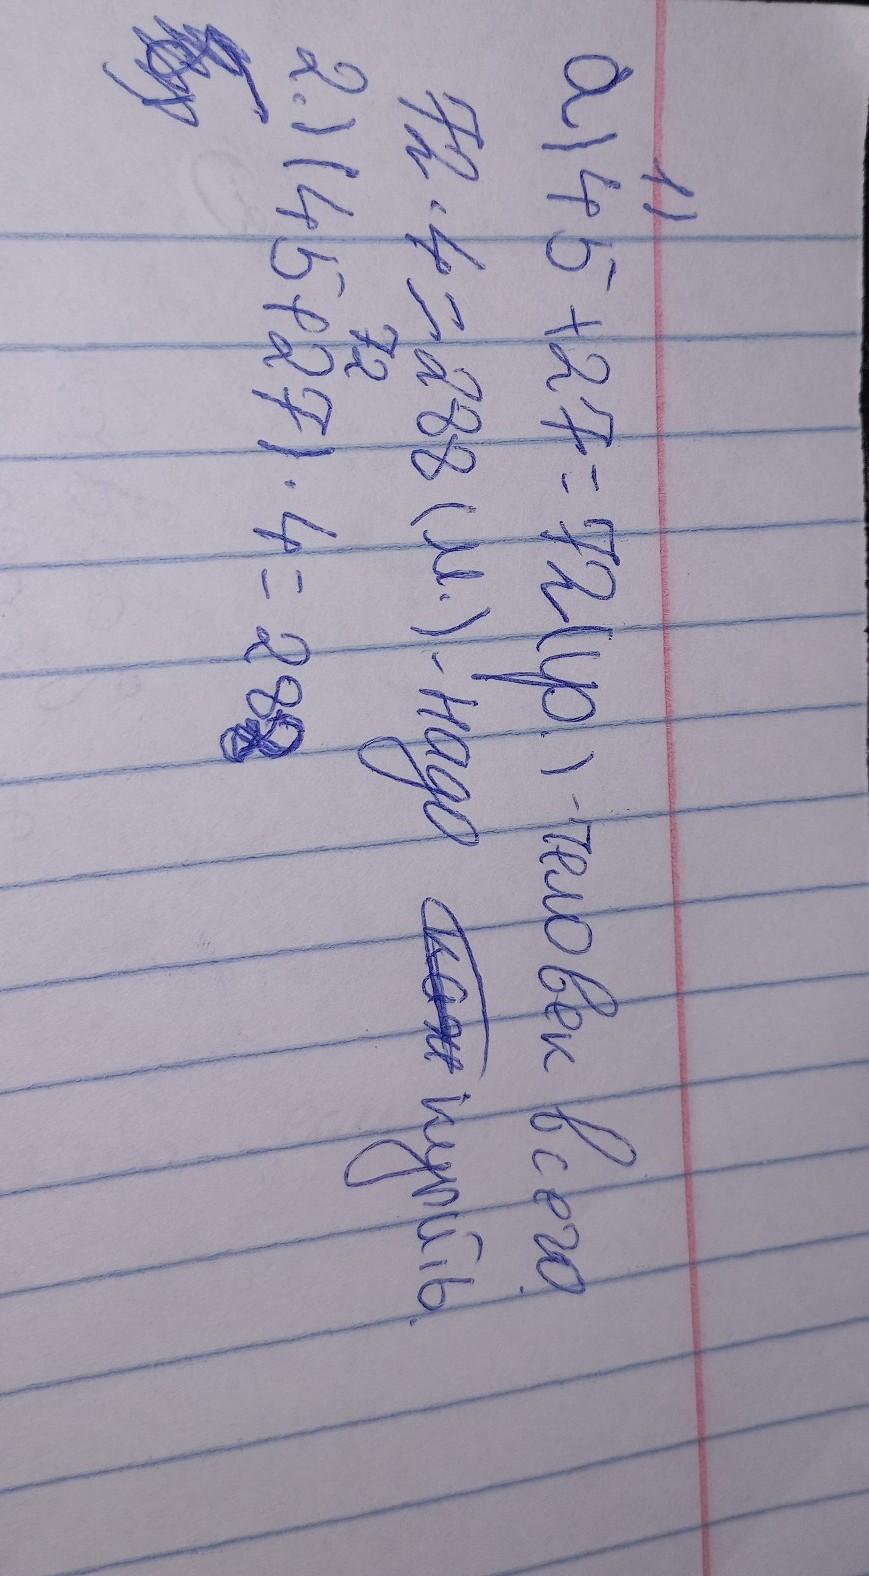 1)
а) 45 + 27 = 72 (р.) - человек всего.
72 · 4 = 288 (м.) - надо купить.
72
2.) (45 + 27) · 4 = 288